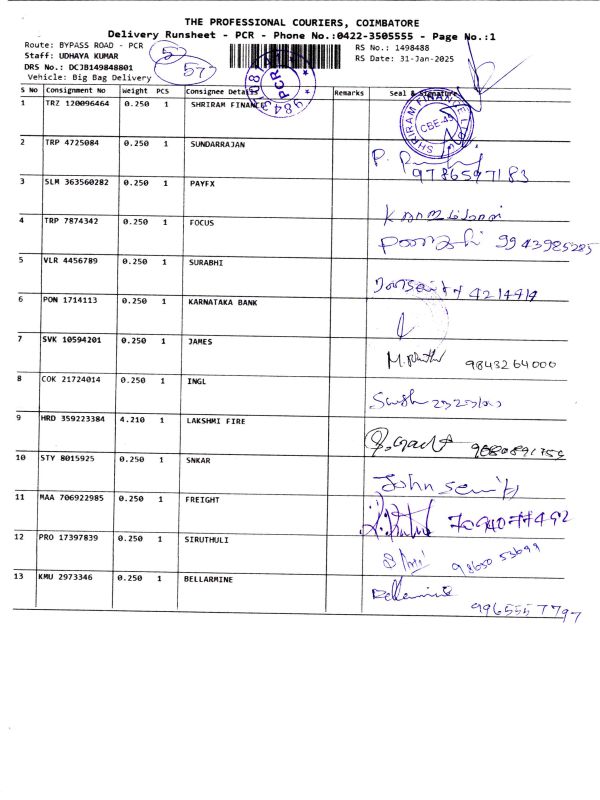 THE PROFESSIONAL COURIERS, COIMBATORE
Delivery Runsheet - PCR - Phone No.:0422-3505555 - Page No.:1
Route: BYPASS ROAD - PCR
RS No.: 1498488
Staff: UDHAYA KUMAR
RS Date: 31-Jan-2025
DRS No.: DCJB149848801
Vehicle: Big Bag Delivery
57
PCR
S No Consignment No Weight PCS Consignee Details Remarks Seal & Signature
1 TRZ 120096464 0.250 1 SHRIRAM FINANCE
SHRIRAM FINANCE LTD CBE-45
2 TRP 4725084 0.250 1 SUNDARRAJAN
9786597183
3 SLM 363560282 0.250 1 PAYFX
4 TRP 7874342 0.250 1 FOCUS
9943985285
5 VLR 4456789 0.250 1 SURABHI
4214414
6 PON 1714113 0.250 1 KARNATAKA BANK
7 SVK 10594201 0.250 1 JAMES
9843264000
8 COK 21724014 0.250 1 INGL
9 HRD 359223384 4.210 1 LAKSHMI FIRE
10 STY 8015925 0.250 1 SNKAR
John
11 MAA 706922985 0.250 1 FREIGHT
12 PRO 17397839 0.250 1 SIRUTHULI
98650 53699
13 KMU 2973346 0.250 1 BELLARMINE
Bellarmine
9965557797